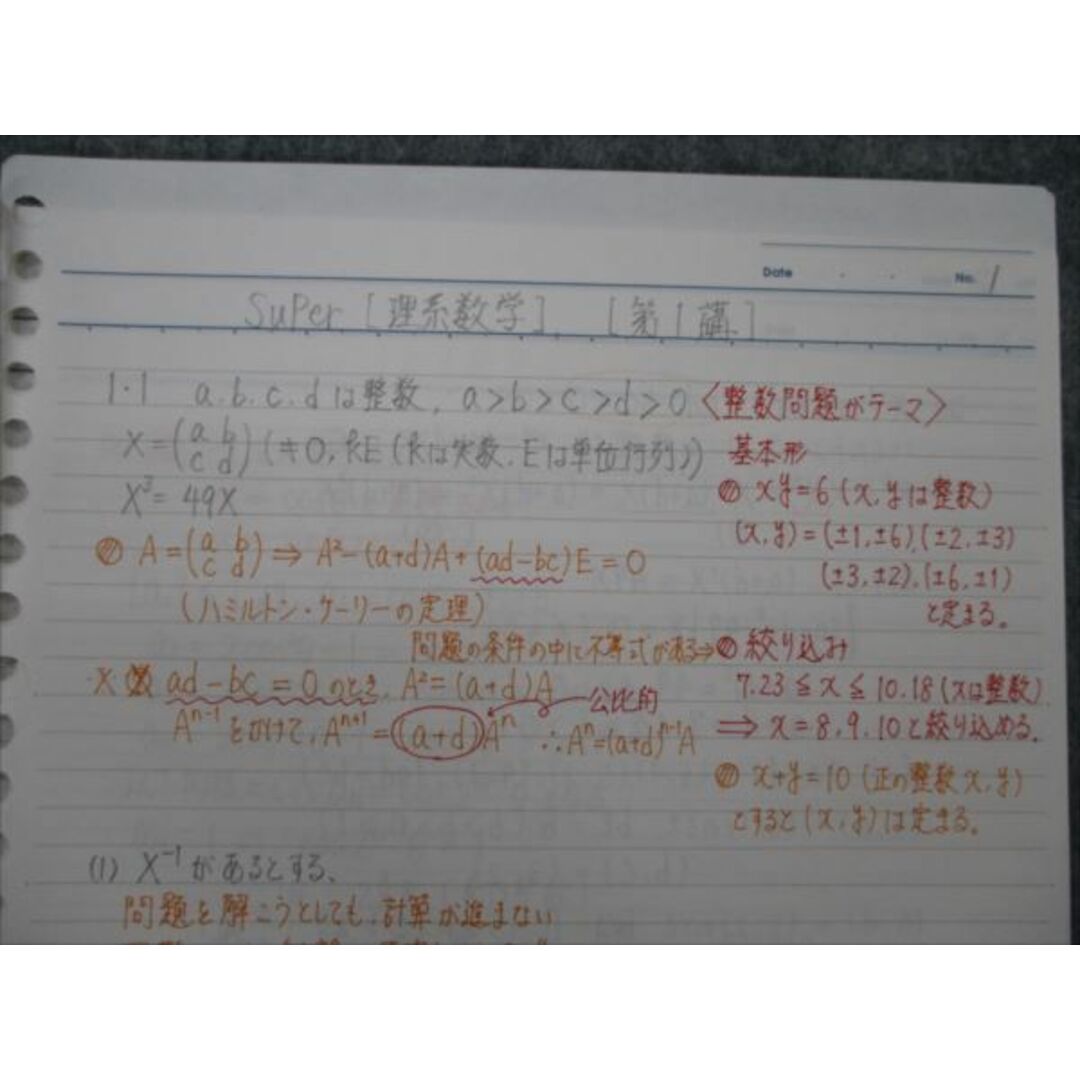 Date . . No. 1
SuPer [理系数学] [第1講]
1・1 a.b.c.dは整数, a>b>c>d>0 〈整数問題がテーマ〉
X=(a b c d)(≠0, kE(kは実数, Eは単位行列)) 基本形
X³=49X
xy=6(x,yは整数)
(x,y)=(±1,±6),(±2,±3)
A=(a b c d)⇒A²-(a+d)A+(ad-bc)E=0
(±3,±2),(±6,±1)
(ハミルトン・ケーリーの定理)
と定まる。
問題の条件の中に不等式がある⇒ 絞り込み
ad-bc=0のとき, A²=(a+d)A
公比的
7.23≦x≦10.18(xは整数)
Aⁿ⁻¹をかけて, Aⁿ⁺¹=(a+d)Aⁿ ∴Aⁿ=(a+d)ⁿ⁻¹A
⇒x=8,9,10と絞り込める。
x+y=10(正の整数x,y)
とすると(x,y)は定まる。
(1) X⁻¹があるとする、
問題を解こうとしても、計算が進まない